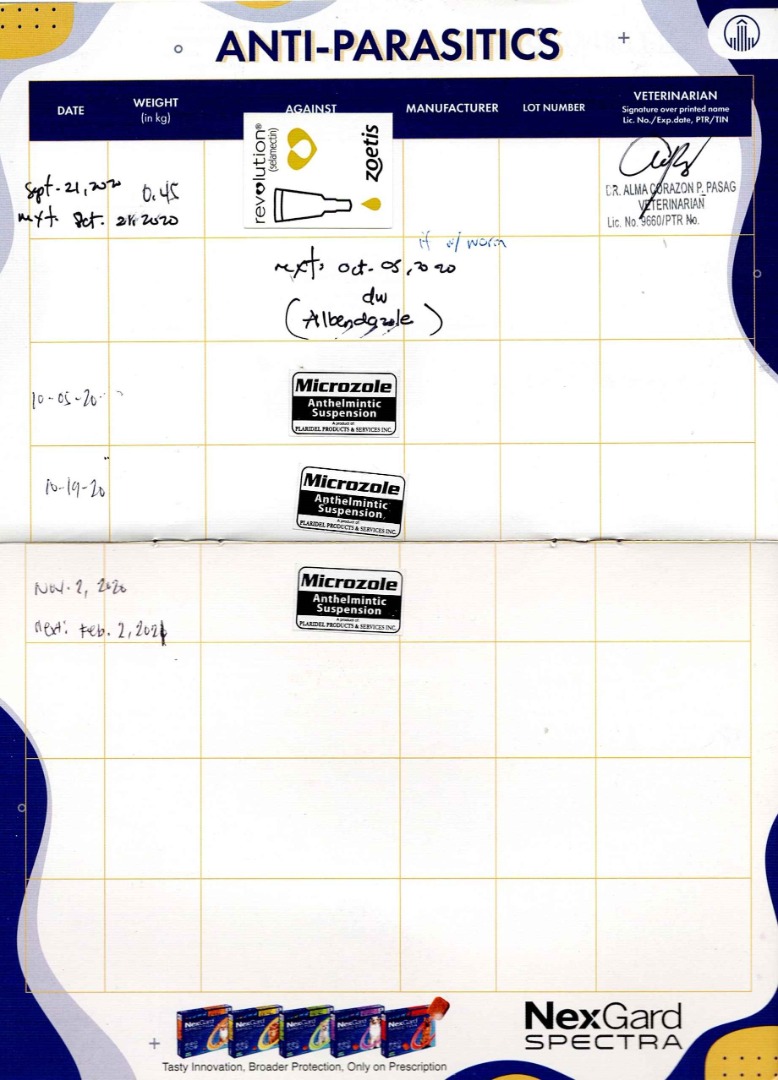 ANTI-PARASITICS
DATE
WEIGHT
(in kg)
AGAINST
MANUFACTURER
LOT NUMBER
VETERINARIAN
Signature over printed name
Lic. No./Exp.date, PTR/TIN
Sept. 21, 2020
0.45
next: Oct. 21, 2020
revolution®
(selamectin)
zoetis
DR. ALMA CORAZON P. PASAG
VETERINARIAN
Lic. No. 9660/PTR No.
if w/ worm
next: Oct. 05, 2020
dw
(Albendazole)
10-05-20
Microzole
Anthelmintic
Suspension
A product of:
PLARIDEL PRODUCTS & SERVICES INC.
10-19-20
Microzole
Anthelmintic
Suspension
A product of:
PLARIDEL PRODUCTS & SERVICES INC.
Nov. 2, 2020
next: Feb. 2, 2021
Microzole
Anthelmintic
Suspension
A product of:
PLARIDEL PRODUCTS & SERVICES INC.
NexGard
NexGard
NexGard
NexGard
NexGard
Tasty Innovation, Broader Protection, Only on Prescription
NexGard
SPECTRA